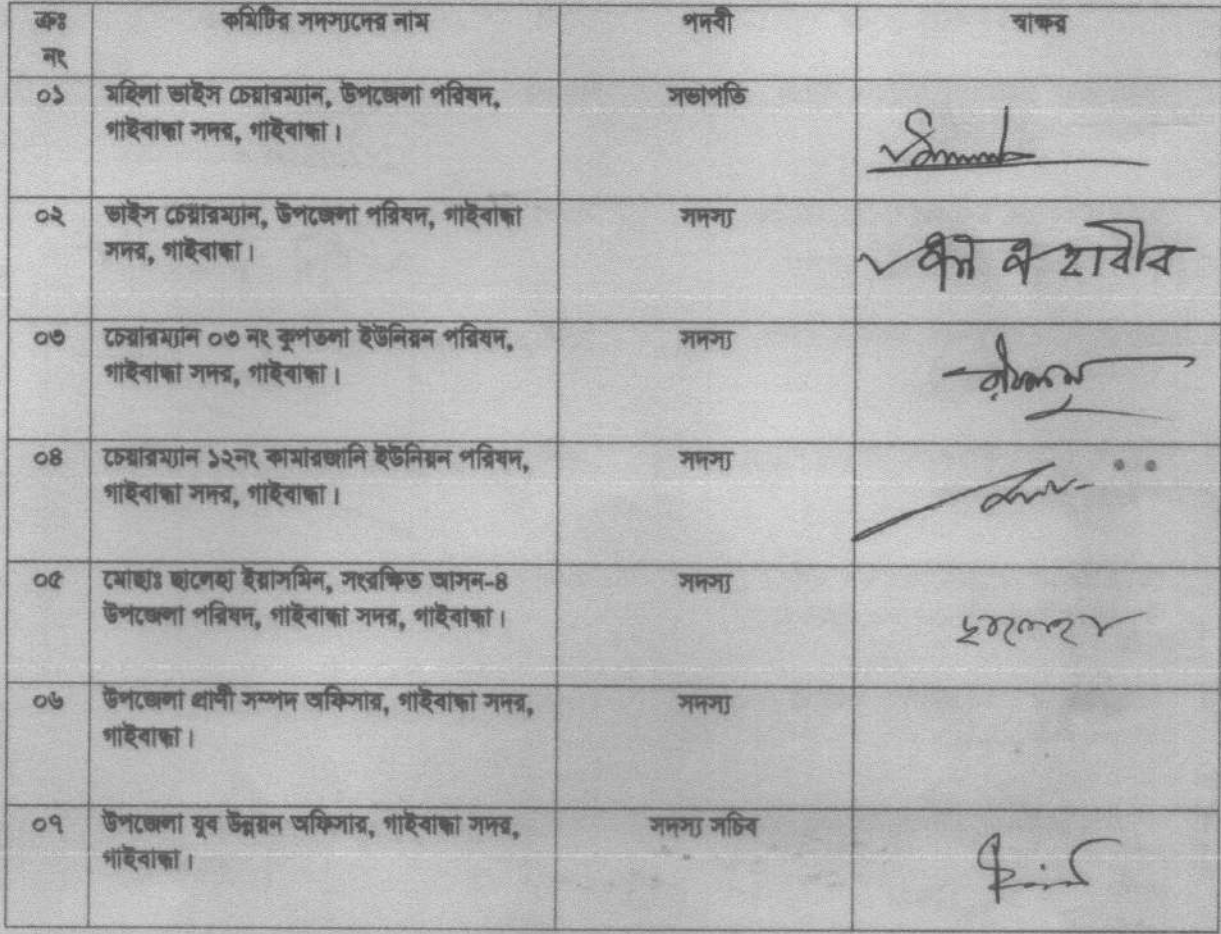 ক্রঃ কমিটির সদস্যদের নাম পদবী স্বাক্ষর
নং
০১ মহিলা ভাইস চেয়ারম্যান, উপজেলা পরিষদ, সভাপতি
গাইবান্ধা সদর, গাইবান্ধা।
০২ ভাইস চেয়ারম্যান, উপজেলা পরিষদ, গাইবান্ধা সদস্য
সদর, গাইবান্ধা।
০৩ চেয়ারম্যান ০৩ নং কুপতলা ইউনিয়ন পরিষদ, সদস্য
গাইবান্ধা সদর, গাইবান্ধা।
০৪ চেয়ারম্যান ১২নং কামারজানি ইউনিয়ন পরিষদ, সদস্য
গাইবান্ধা সদর, গাইবান্ধা।
০৫ মোছাঃ ছালেহা ইয়াসমিন, সংরক্ষিত আসন-৪ সদস্য
উপজেলা পরিষদ, গাইবান্ধা সদর, গাইবান্ধা।
ছালেহা
০৬ উপজেলা প্রাণী সম্পদ অফিসার, গাইবান্ধা সদর, সদস্য
গাইবান্ধা।
০৭ উপজেলা যুব উন্নয়ন অফিসার, গাইবান্ধা সদর, সদস্য সচিব
গাইবান্ধা।